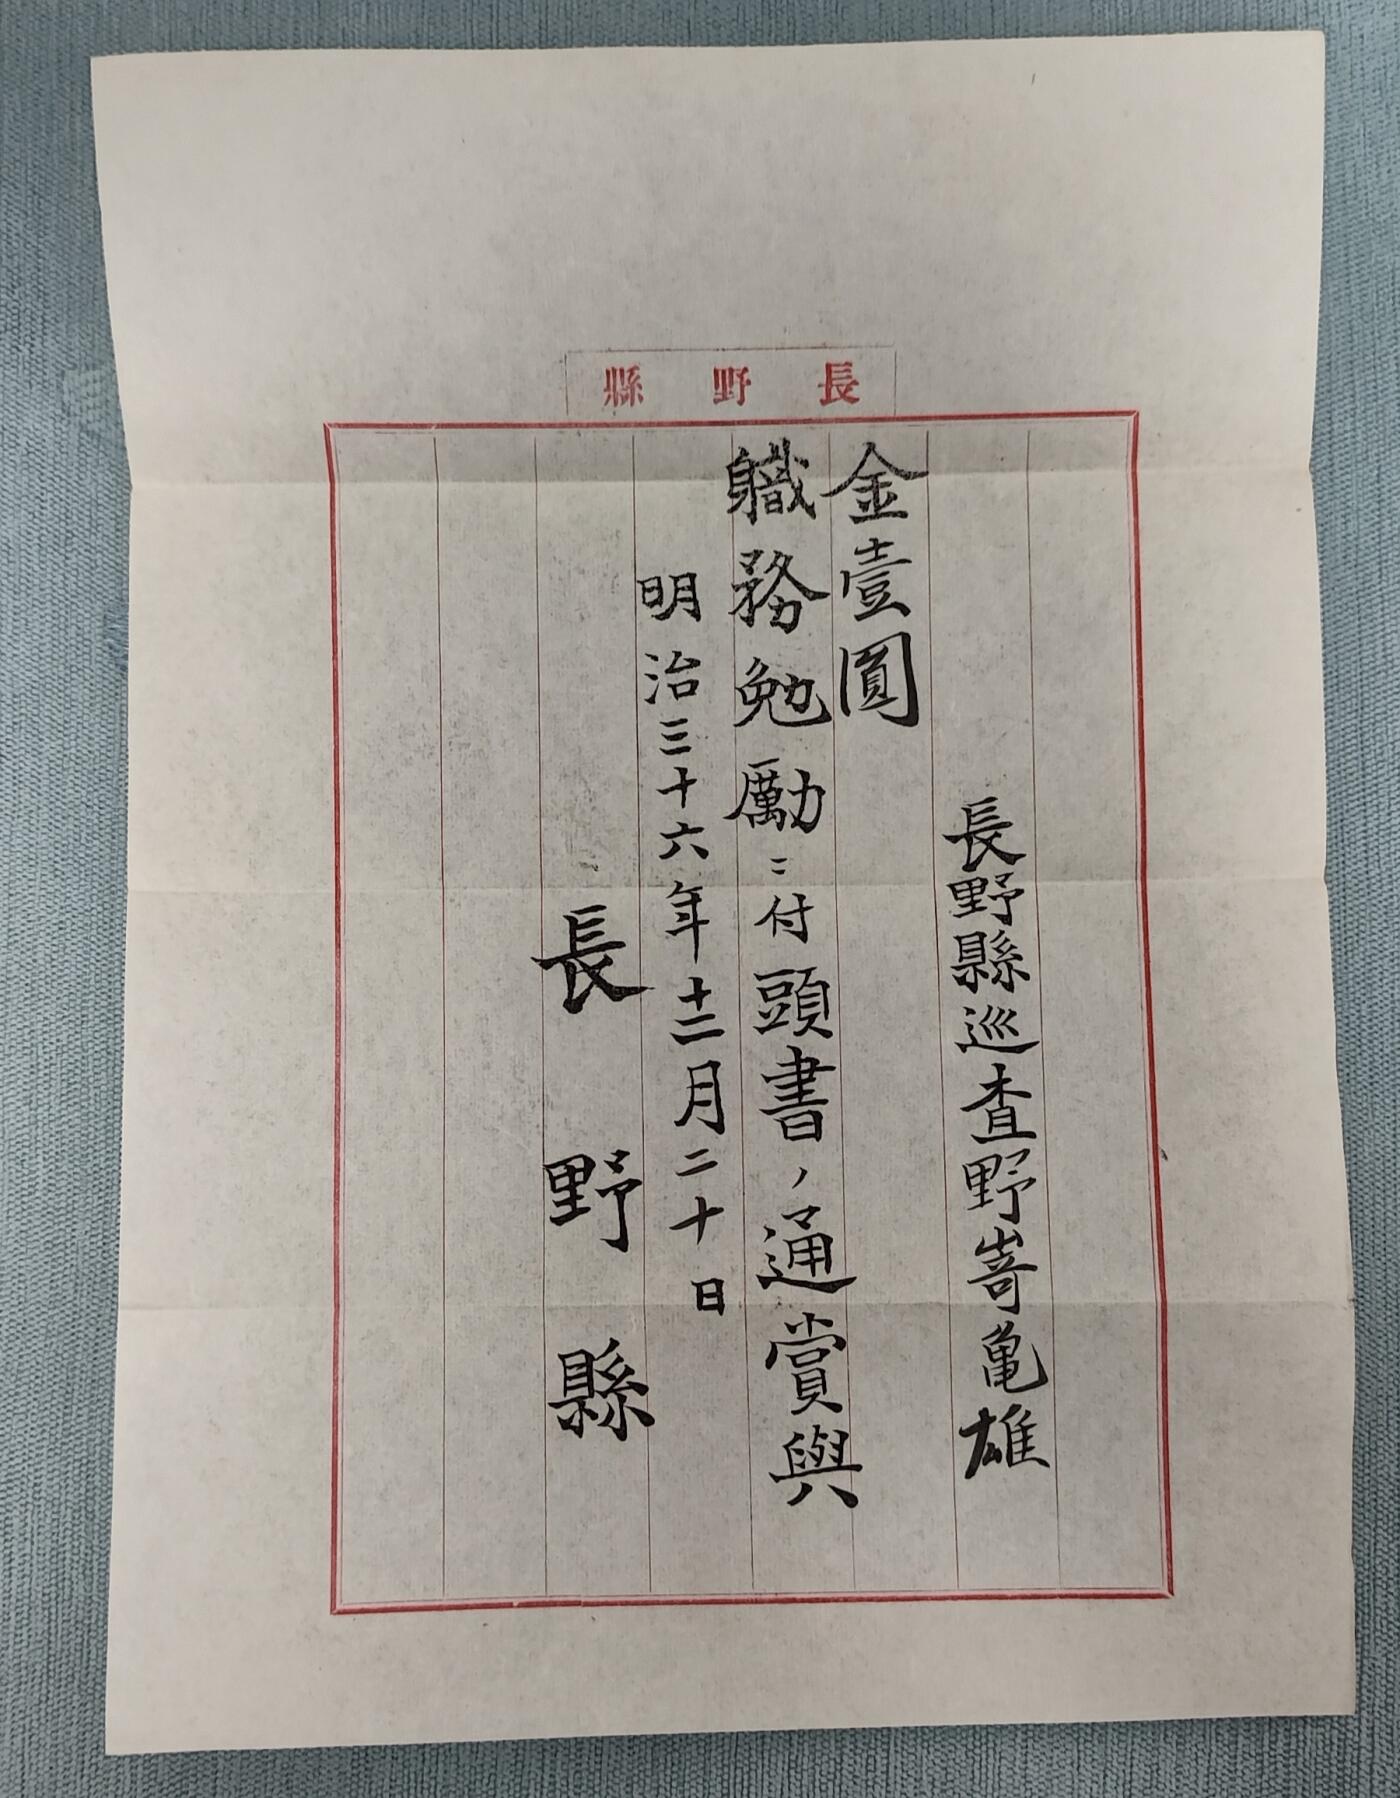 長野縣
長野縣巡査野嵜亀雄
金壹圓
軄務勉励ニ付頭書ノ通賞與
明治三十六年十二月二十日
長野縣